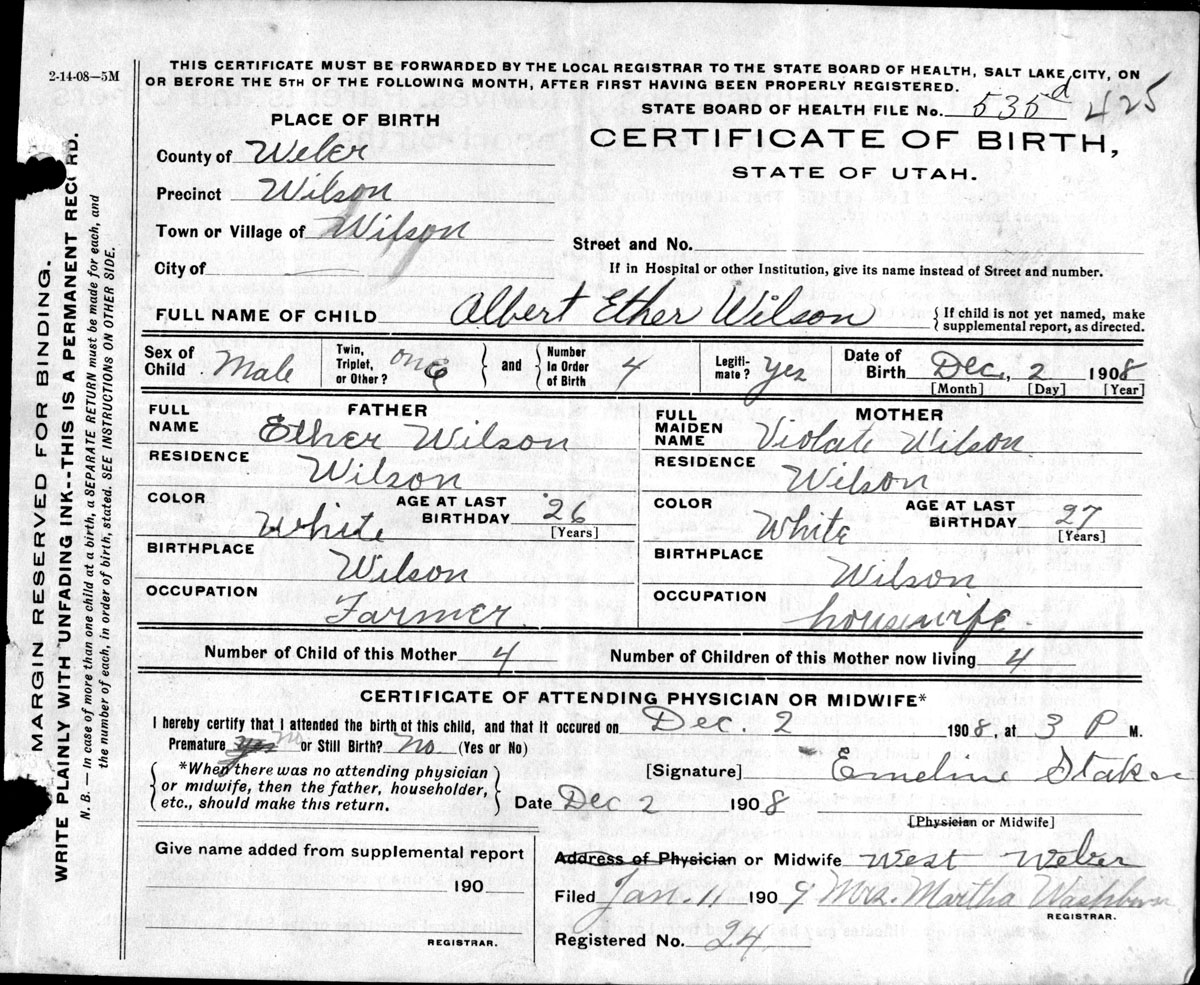 2-14-08—5M
THIS CERTIFICATE MUST BE FORWARDED BY THE LOCAL REGISTRAR TO THE STATE BOARD OF HEALTH, SALT LAKE CITY, ON
OR BEFORE THE 5TH OF THE FOLLOWING MONTH, AFTER FIRST HAVING BEEN PROPERLY REGISTERED.
STATE BOARD OF HEALTH FILE No. 535d 425
PLACE OF BIRTH
CERTIFICATE OF BIRTH,
STATE OF UTAH.
County of Weber
Precinct Wilson
Town or Village of Wilson
Street and No.
City of
If in Hospital or other Institution, give its name instead of Street and number.
FULL NAME OF CHILD Albert Ether Wilson { If child is not yet named, make
supplemental report, as directed.
Sex of Child Male Twin, Triplet, or Other? one and Number In Order of Birth 4 Legiti-mate? Yes Date of Birth Dec. 2 1908
[Month] [Day] [Year]
FATHER
FULL NAME Ether Wilson
RESIDENCE Wilson
COLOR White AGE AT LAST BIRTHDAY 26
[Years]
BIRTHPLACE Wilson
OCCUPATION Farmer
MOTHER
FULL MAIDEN NAME Violate Wilson
RESIDENCE Wilson
COLOR White AGE AT LAST BIRTHDAY 27
[Years]
BIRTHPLACE Wilson
OCCUPATION housewife.
Number of Child of this Mother 4 Number of Children of this Mother now living 4
CERTIFICATE OF ATTENDING PHYSICIAN OR MIDWIFE*
I hereby certify that I attended the birth of this child, and that it occured on Dec. 2 1908, at 3 P M.
Premature yes no or Still Birth? no (Yes or No)
{ *When there was no attending physician
or midwife, then the father, householder,
etc., should make this return. }
[Signature] Emeline Staker
Date Dec 2 1908
[Physician or Midwife]
Give name added from supplemental report
190
REGISTRAR.
Address of Physician or Midwife West Weber
Filed Jan. 11 1909 Mrs. Martha Washburn
REGISTRAR.
Registered No. 24
MARGIN RESERVED FOR BINDING.
WRITE PLAINLY WITH UNFADING INK--THIS IS A PERMANENT RECORD.
N. B. — In case of more than one child at a birth, a SEPARATE RETURN must be made for each, and
the number of each, in order of birth, stated. SEE INSTRUCTIONS ON OTHER SIDE.